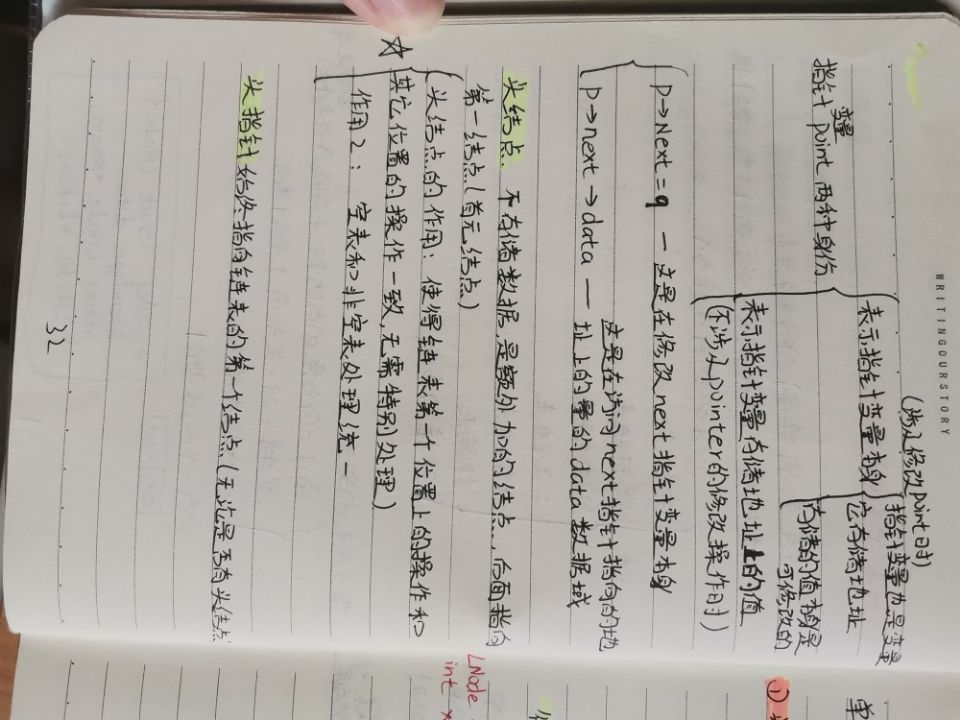 WRITINGOURSTORY
(涉及修改point时)
指针变量也是变量
表示指针变量本身
它存储地址
存储的值本身是
可修改的
变量
指针point两种身份
表示指针变量存储地址上的值
(不涉及pointer的修改操作时)
p→Next=q — 这是在修改next指针变量本身
这是在访问next指针指向的地
p→next→data — 址上的量的data数据域
头结点. 不存储数据是额外加的结点.,向面指向
第一结点(首元结点)
(头结点的作用: 使得链表第一个位置上的操作和
☆
其它位置的操作一致,无需特别处理)
作用2: 空表和非空表处理统一
头指针始终指向链表的第一个结点(无论是否有头结点
32
单
①
LNode
int x